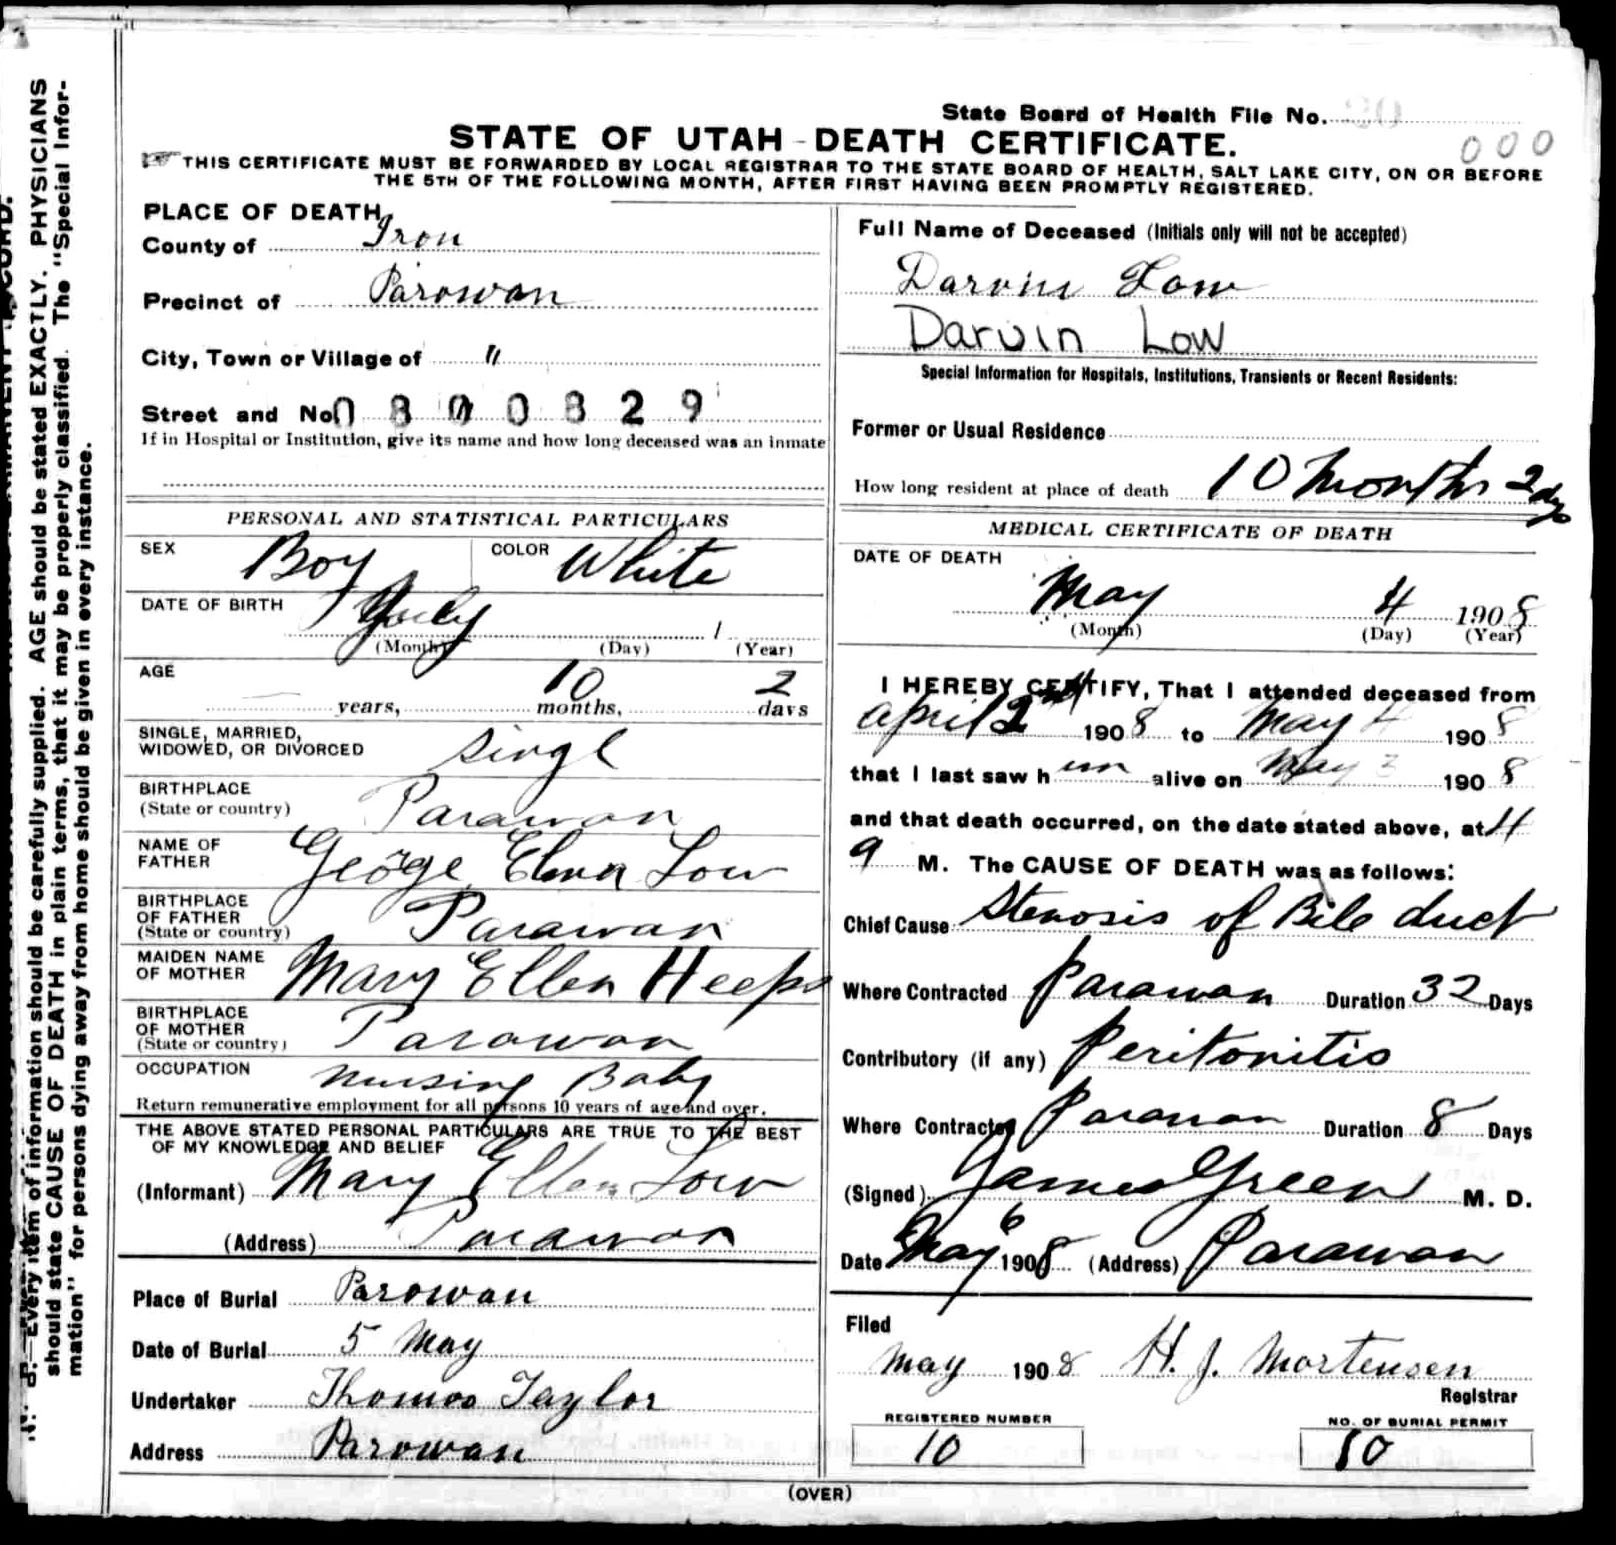 State Board of Health File No.
000
STATE OF UTAH-DEATH CERTIFICATE.
THIS CERTIFICATE MUST BE FORWARDED BY LOCAL REGISTRAR TO THE STATE BOARD OF HEALTH, SALT LAKE CITY, ON OR BEFORE
THE 5TH OF THE FOLLOWING MONTH, AFTER FIRST HAVING BEEN PROMPTLY REGISTERED.
N. B.—Every item of information should be carefully supplied. AGE should be stated EXACTLY. PHYSICIANS
should state CAUSE OF DEATH in plain terms, that it may be properly classified. The "Special Infor-
mation" for persons dying away from home should be given in every instance.
PLACE OF DEATH
County of Iron
Precinct of Parowan
City, Town or Village of "
Street and No. 0 8 0 0 8 2 9
If in Hospital or Institution, give its name and how long deceased was an inmate
PERSONAL AND STATISTICAL PARTICULARS
SEX Boy COLOR White
DATE OF BIRTH July 1
(Month) (Day) (Year)
AGE 10 2
years, months, days
SINGLE, MARRIED, WIDOWED, OR DIVORCED Singl
BIRTHPLACE
(State or country) Parawan
NAME OF FATHER Geoge Low
BIRTHPLACE OF FATHER
(State or country) Parawan
MAIDEN NAME OF MOTHER Mary Ellen Heeps
BIRTHPLACE OF MOTHER
(State or country) Parowan
OCCUPATION Nursing Baby
Return remunerative employment for all persons 10 years of age and over.
THE ABOVE STATED PERSONAL PARTICULARS ARE TRUE TO THE BEST
OF MY KNOWLEDGE AND BELIEF
(Informant) Mary Ellen Low
(Address) Parawan
Place of Burial Parowan
Date of Burial 5 May
Undertaker Thomas Taylor
Address Parowan
Full Name of Deceased (Initials only will not be accepted)
Darvin Low
Darvin Low
Special Information for Hospitals, Institutions, Transients or Recent Residents:
Former or Usual Residence
How long resident at place of death 10 Months 2 dys
MEDICAL CERTIFICATE OF DEATH
DATE OF DEATH
May 4 1908
(Month) (Day) (Year)
I HEREBY CERTIFY, That I attended deceased from
April 2nd 1908 to May 4 1908
that I last saw him alive on May 3 1908
and that death occurred, on the date stated above, at 4
a M. The CAUSE OF DEATH was as follows:
Chief Cause Stenosis of Bile duct
Where Contracted Parawan Duration 32 Days
Contributory (if any) Peritonitis
Where Contracted Parawan Duration 8 Days
(Signed) James Green M. D.
Date May 6 1908 (Address) Parawan
Filed
May 1908 H. J. Mortensen
Registrar
REGISTERED NUMBER
10
NO. OF BURIAL PERMIT
10
(OVER)